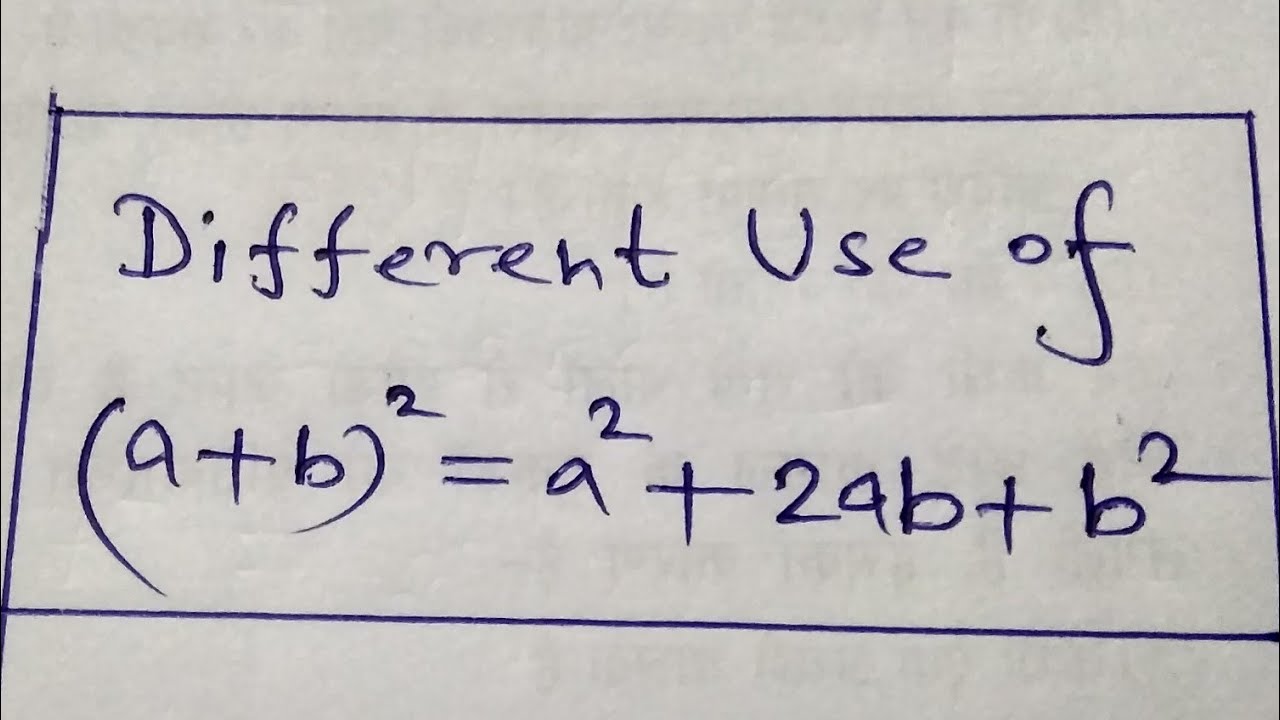 Different Use of
(a+b)² = a² + 2ab + b²